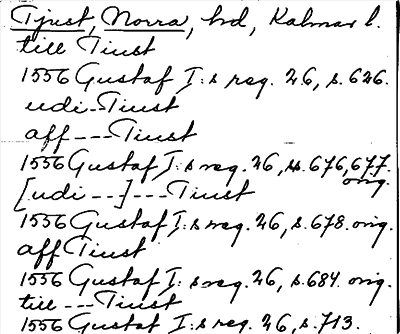 Tjust, Norra, hd, Kalmar l.
till Tiust
1556 Gustaf I:s reg. 26, s. 626.
udi Tiust
aff --- Tiust
1556 Gustaf I:s reg. 26, ss. 676, 677. orig.
[udi --] --- Tiust
1556 Gustaf I:s reg. 26, s. 678. orig.
aff Tiust
1556 Gustaf I:s reg. 26, s. 684. orig.
till --- Tiust
1556 Gustaf I:s reg. 26, s. 713.